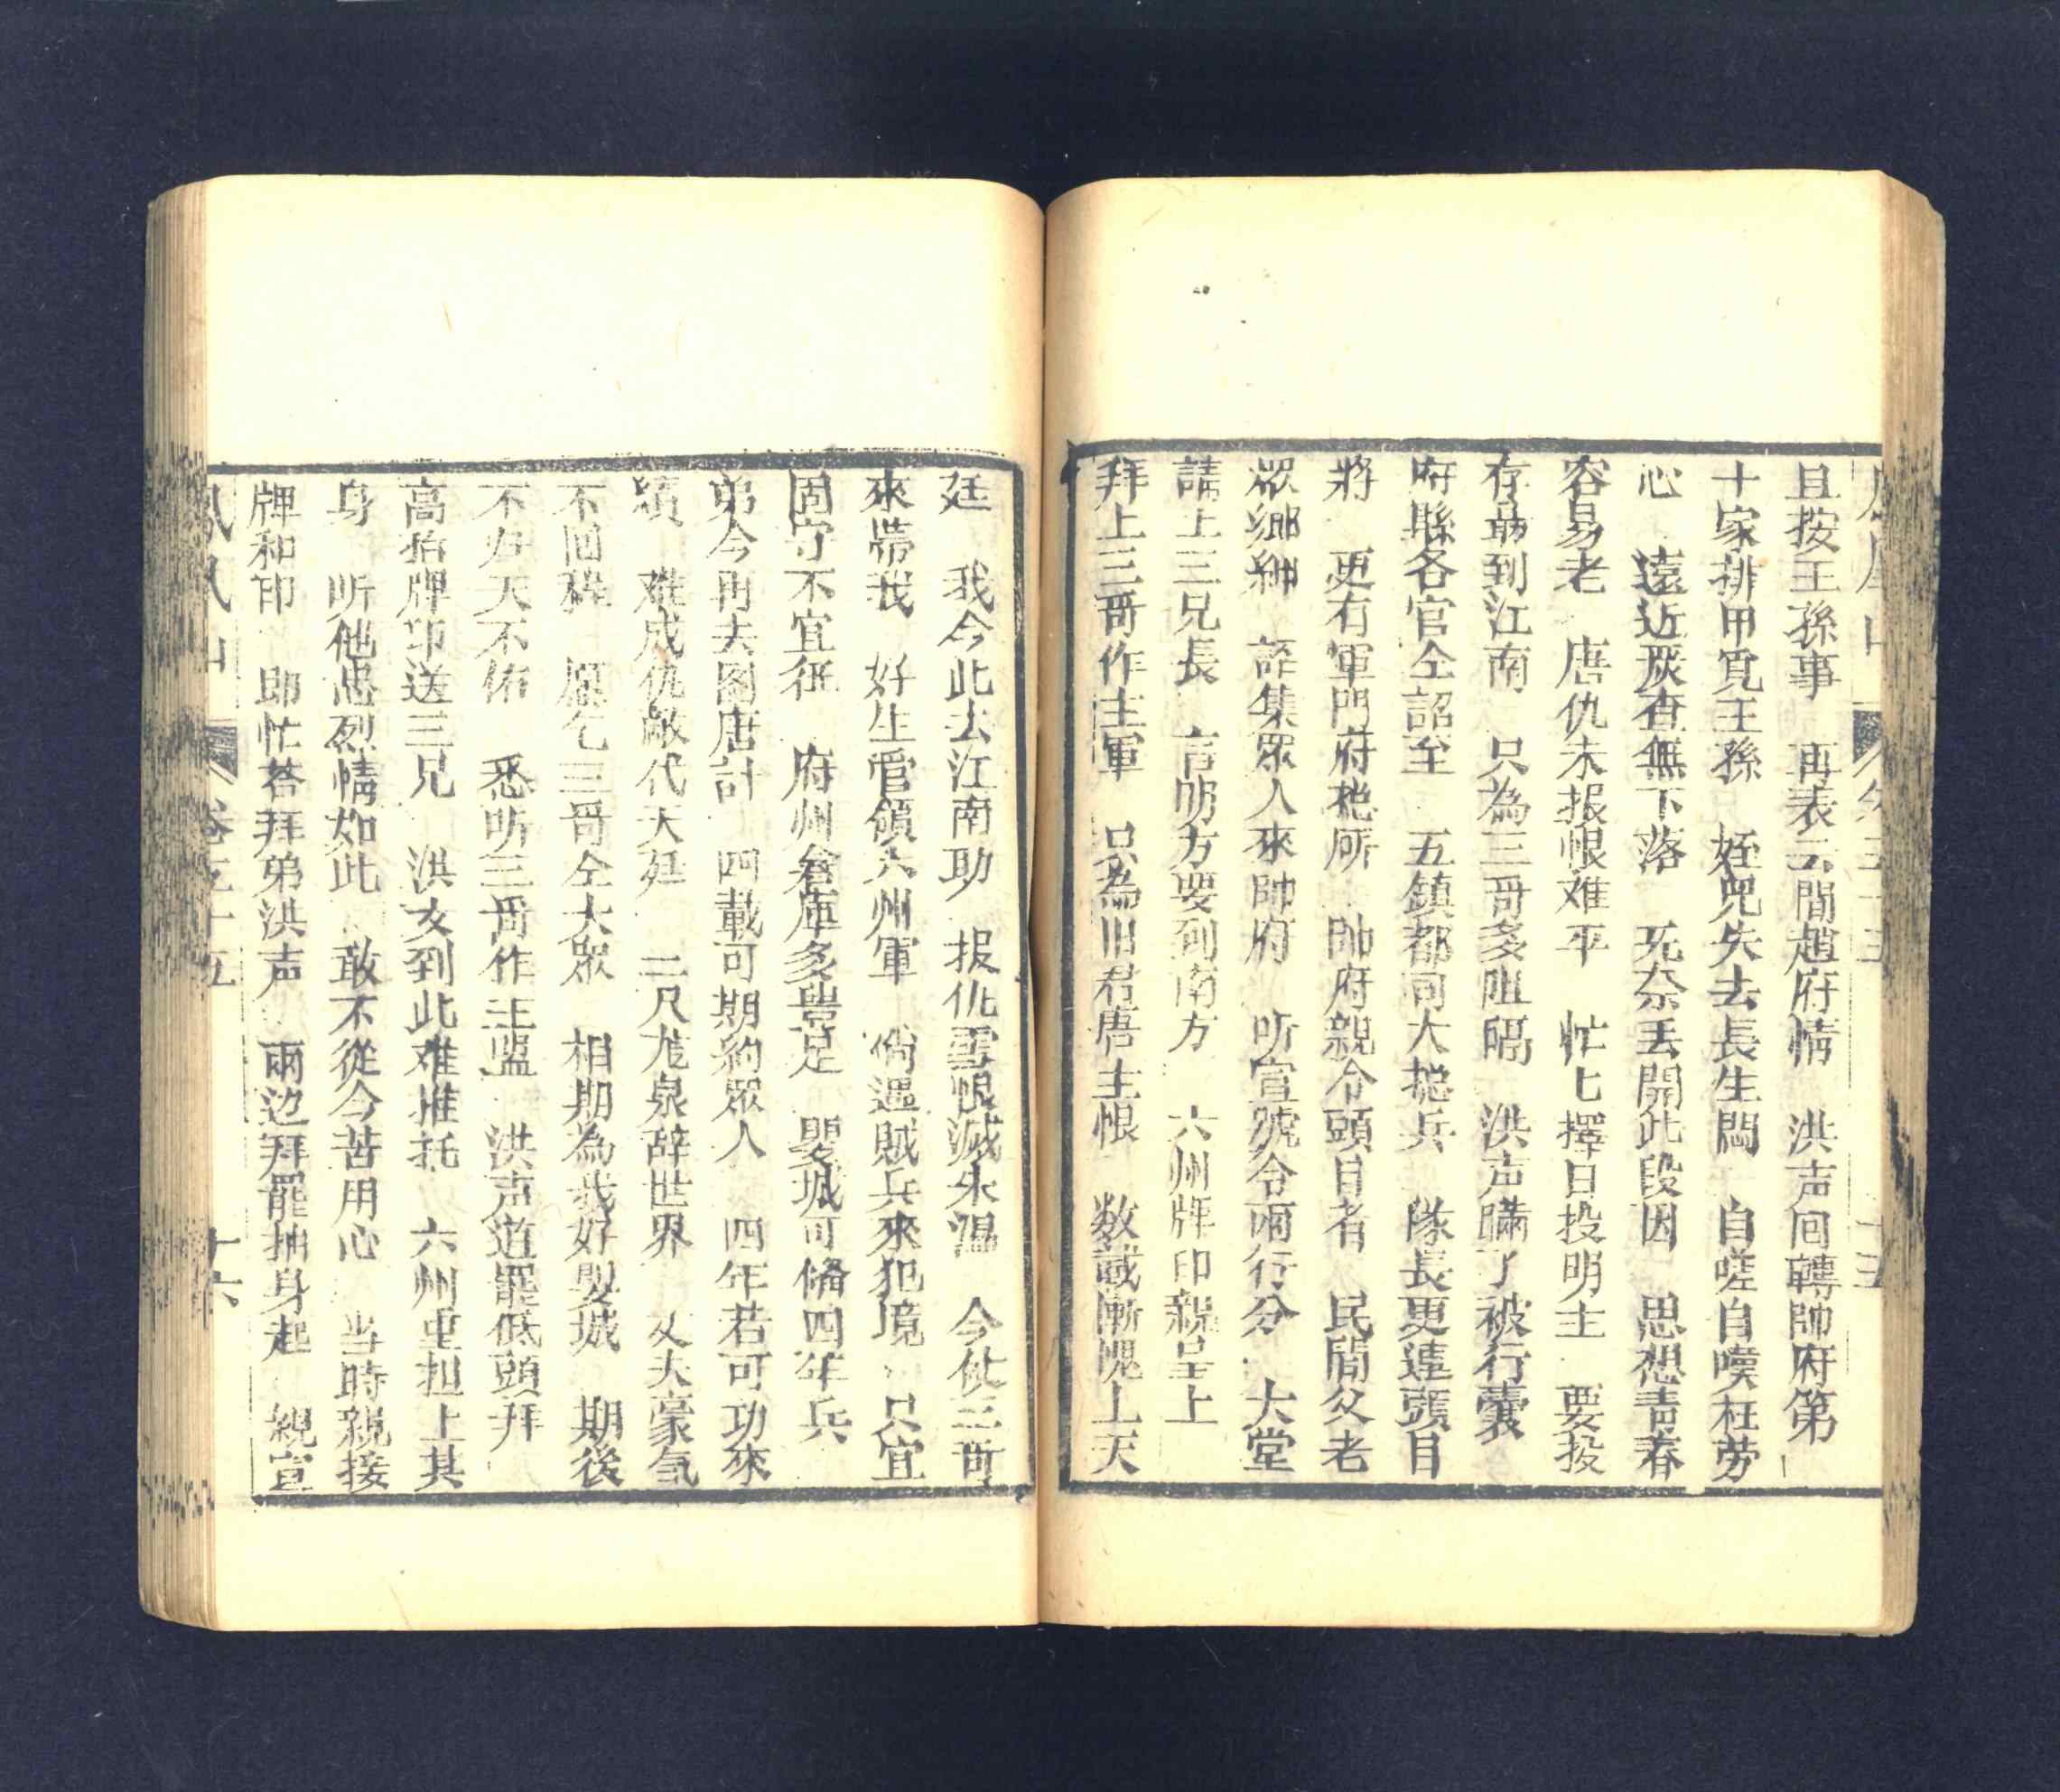 且按王孫事　再表云間趙府情　洪声囬轉帥府第
十家排甲覓王孫　姪兒失去長生閗　自嗟自嘆枉劳
心　遠近嚴查無下落　无奈丢開此段因　思想青春
容易老　唐仇未报恨难平　忙七擇日投明主　要投
存勗到江南　只為三哥多阻隔　洪声瞞了被行囊
府縣各官仝詔至　五鎮都司大搃兵　隊長更連頭目
將　更有軍門府搃所　帥府親令頭目者　民間父老
眾鄉紳　詔集眾人來帥府　听宣號令兩行分　大堂
請上三兄長　言明方要到南方　六州牌印親呈上
拜上三哥作主軍　只為旧君唐主恨　数載慚愧上天
廷　我今此去江南助　报仇雪恨滅朱溫　今仗三哥
來帶我　好生管領六州軍　倘遇賊兵來犯境　只宜
固守不宜征　府州倉庫多豊足　嬰城可備四年兵
弟今再去图唐計　四載可期約眾人　四年若可功來
績　难成仇敵代天廷　二尺龙泉辞世界　丈夫豪氣
不回程　愿乞三哥仝大眾　相期為我好嬰城　期後
不归天不佑　悉听三哥作主盟　洪声道罷低頭拜
高抬牌印送三兄　洪女到此难推托　六州重担上其
身　听他忠烈情如此　敢不從今苦用心　当時親接
牌和印　即忙荅拜弟洪声　兩边拜罷抽身起　親宣
鳳凰山　卷五十五　十六